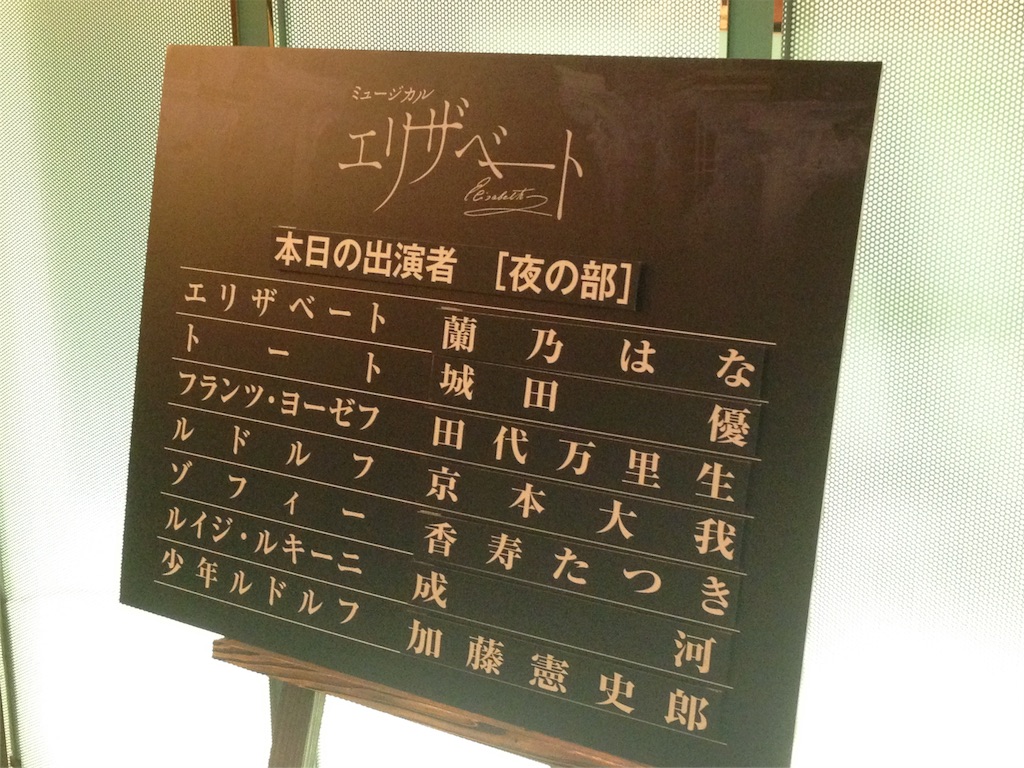 ミュージカル
エリザベート
Elisabeth
本日の出演者 [夜の部]
エリザベート 蘭乃はな
トート 城田優
フランツ・ヨーゼフ 田代万里生
ルドルフ 京本大我
ゾフィー 香寿たつき
ルイジ・ルキーニ 成河
少年ルドルフ 加藤憲史郎